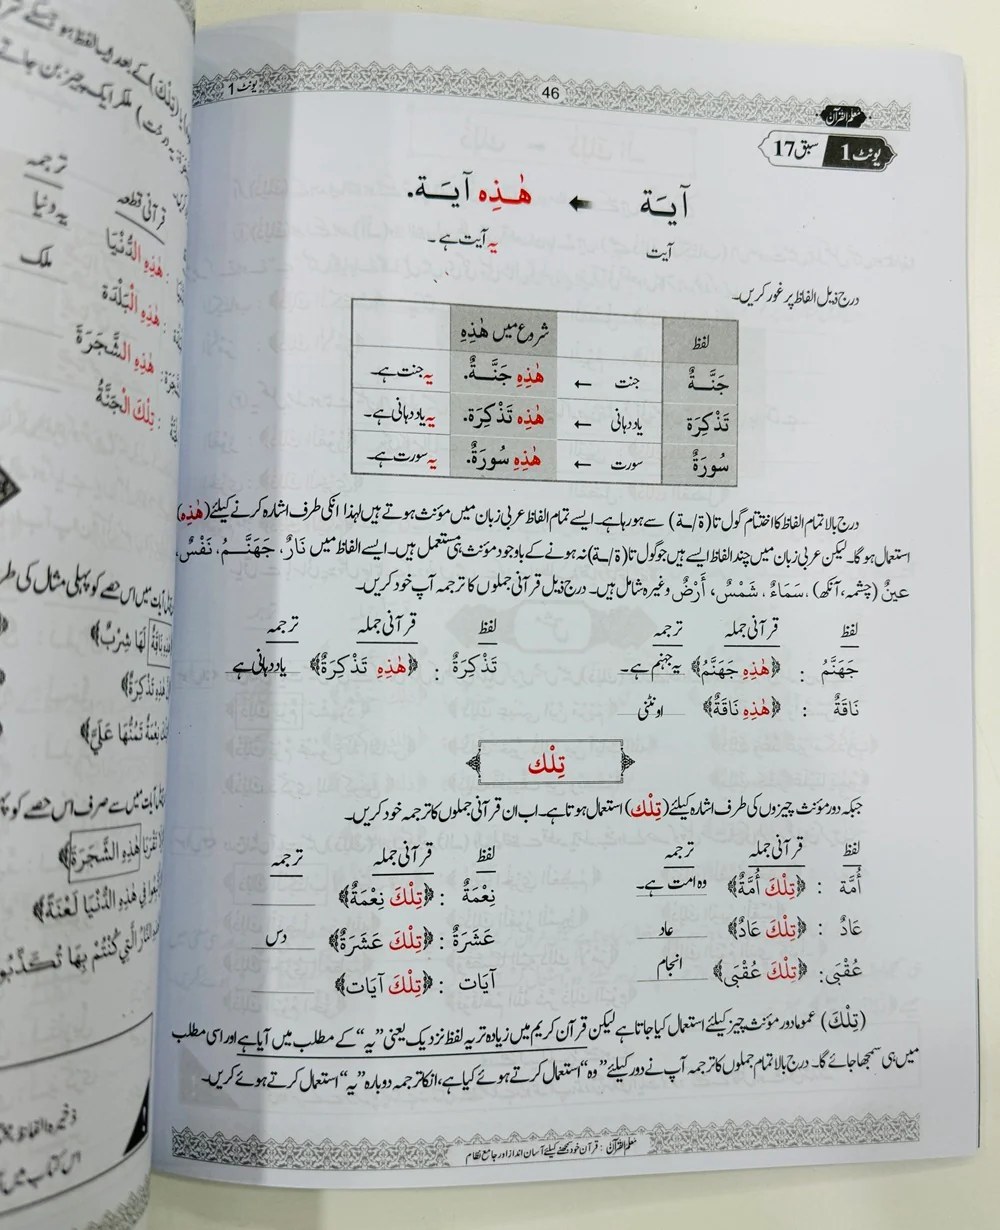 معلم القرآن
46
یونٹ 1
یونٹ 1 سبق 17
آیـَـة ← هٰـذِہِ آیـَـة.
آیت یہ آیت ہے۔
درج ذیل الفاظ پر غور کریں۔
لفظ شروع میں هٰذِہِ
جَنَّــةٌ جنت ← هٰذِہِ جَنَّــةٌ. یہ جنت ہے۔
تَذْکِرَة یاددہانی ← هٰذِہِ تَذْکِرَة. یہ یاددہانی ہے۔
سُورَةٌ سورت ← هٰذِہِ سُورَةٌ. یہ سورت ہے۔
درج بالا تمام الفاظ کا اختتام گول تا (ة/ـة) سے ہورہا ہے۔ ایسے تمام الفاظ عربی زبان میں مؤنث ہوتے ہیں لہٰذا انکی طرف اشارہ کرنے کیلئے (هٰذِہِ)
استعمال ہوگا۔ لیکن عربی زبان میں چند الفاظ ایسے ہیں جو گول تا (ة/ـة) نہ ہونے کے باوجود مؤنث ہی مستعمل ہیں۔ ایسے الفاظ میں نَارٌ، جَهَنَّــمُ، نَفْسٌ،
عینٌ (چشمہ، آنکھ) ،سَمَاءٌ ، شَمْسٌ، أَرْضٌ وغیرہ شامل ہیں۔ درج ذیل قرآنی جملوں کا ترجمہ آپ خود کریں۔
لفظ قرآنی جملہ ترجمہ لفظ قرآنی جملہ ترجمہ
جَهَنَّمُ : ﴿هٰذِہِ جَهَنَّمُ﴾ یہ جہنم ہے۔ تَذْکِرَةٌ : ﴿هٰذِہِ تَذْکِرَةٌ﴾ یاددہانی ہے
نَاقَةٌ : ﴿هٰذِہِ نَاقَةٌ﴾ اونٹنی
تِلْكَ
جبکہ دور مؤنث چیزوں کی طرف اشارہ کیلئے (تِلْكَ) استعمال ہوتا ہے۔ اب ان قرآنی جملوں کا ترجمہ خود کریں۔
لفظ قرآنی جملہ ترجمہ لفظ قرآنی جملہ ترجمہ
أُمَّة : ﴿تِلْكَ أُمَّةٌ﴾ وہ امت ہے۔ نِعْمَةٌ : ﴿تِلْكَ نِعْمَةٌ﴾
عَادٌ : ﴿تِلْكَ عَادٌ﴾ عاد عَشَرَةٌ : ﴿تِلْكَ عَشَرَةٌ﴾ دس
عُقْبَی: ﴿تِلْكَ عُقْبَی﴾ انجام آیَات : ﴿تِلْكَ آیَات﴾
(تِلْكَ) عموما دور مؤنث چیز کیلئے استعمال کیا جاتا ہے لیکن قرآن کریم میں زیادہ تر یہ لفظ نزدیک یعنی ”یہ“ کے مطلب میں آیا ہے اور اسی مطلب
میں ہی سمجھا جائے گا۔ درج بالا تمام جملوں کا ترجمہ آپ نے دور کیلئے ”وہ“ استعمال کرتے ہوئے کیا ہے، انکا ترجمہ دوبارہ ”یہ“ استعمال کرتے ہوئے کریں۔
معلم القرآن : قرآن خود سمجھنے کیلئے آسان انداز اور جامع نظام
ترجمہ
قرآنی قطعہ
یہ دنیا
هٰذِہِ الدُّنْیَا
ملک
هٰذِہِ الْبَلْدَة
هٰذِہِ الشَّجَرَةَ
تِلْكَ الْجَنَّةُ
آیات میں اس حصے کو پہلی مثال کی طر
نَاقَةٌ لَهَا شِرْبٌ﴾
هٰذِہِ تَذْکِرَةٌ﴾
نِعْمَةٌ تَمُنُّهَا عَلَيَّ﴾
آیات میں سے صرف اس حصے کو
تَقْرَبَا هٰذِہِ الشَّجَرَةَ﴾
فِي هٰذِہِ الدُّنْیَا لَعْنَةً﴾
النَّارُ الَّتِي کُنْتُمْ بِهَا تُکَذِّبُو
ذخیرہ الفاظ
اس کتاب میں